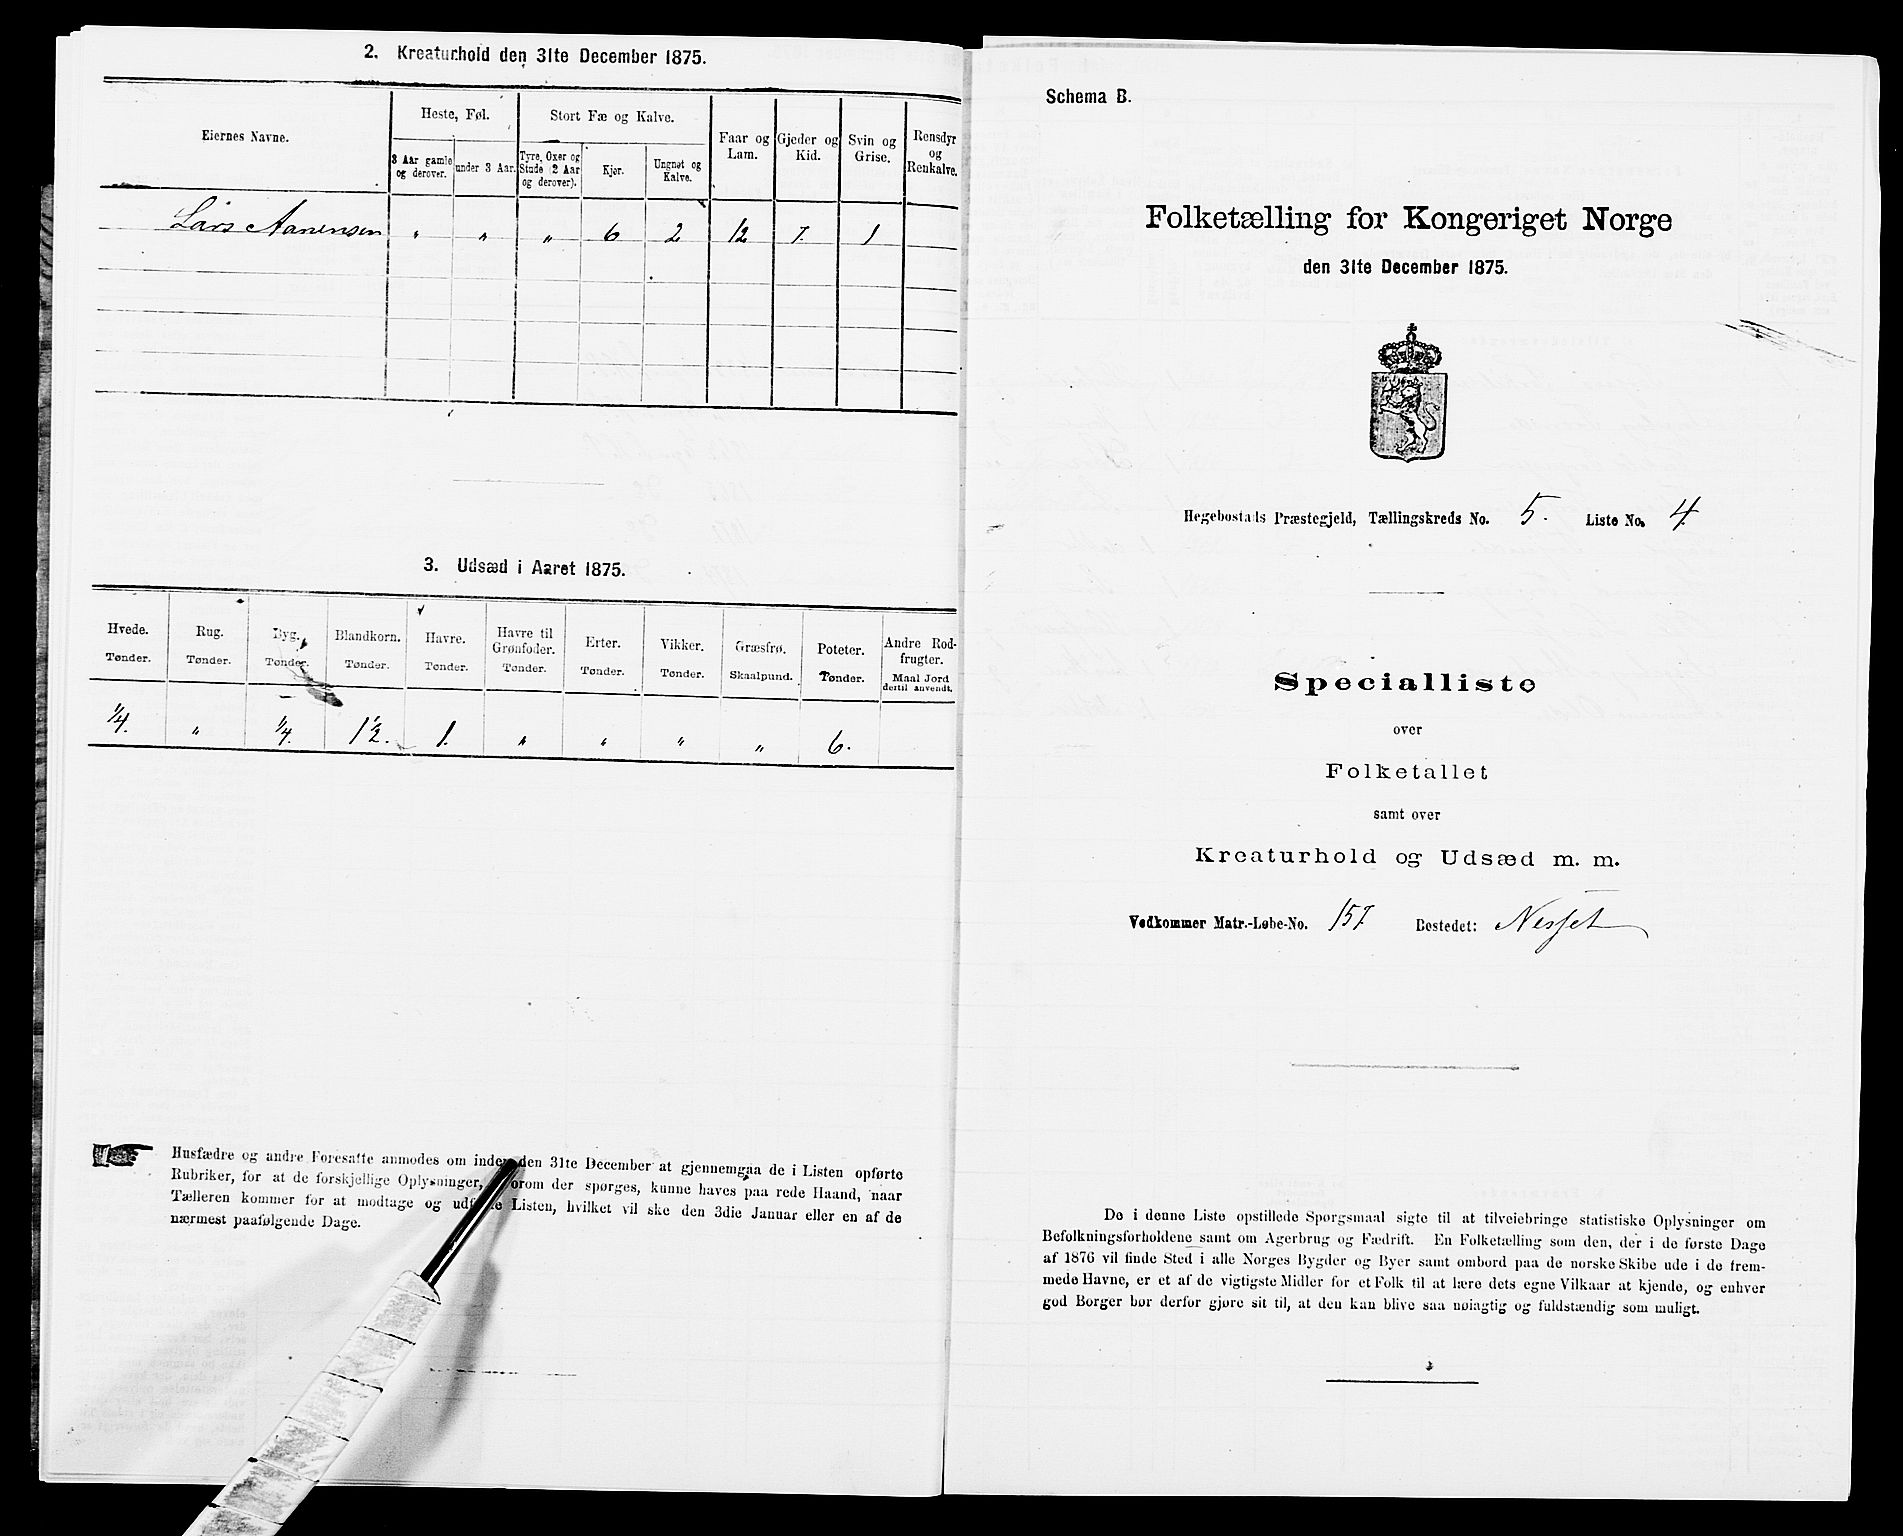 2. Kreaturhold den 31te December 1875.
Eiernes Navne.
Heste, Føl.
Stort Fæ og Kalve.
3 Aar gamle og derover.
under 3 Aar.
Tyre, Oxer og Stude (2 Aar og derover).
Kjør.
Ungnøt og Kalve.
Faar og Lam.
Gjeder og Kid.
Svin og Grise.
Rensdyr og Renkalve.
Lars Aanensen " " " 6 2 12 7. 1
3. Udsæd i Aaret 1875.
Hvede. Rug. Byg. Blandkorn. Havre. Havre til Grønfoder. Erter. Vikker. Græsfrø. Poteter. Andre Rodfrugter.
Tønder. Tønder. Tønder. Tønder. Tønder. Tønder. Tønder. Tønder. Skaalpund. Tønder. Maal Jord dertil anvendt.
1/4. " 1/4. 1 1/2. 1. " " " " 6.
Husfædre og andre Foresatte anmodes om inden den 31te December at gjennemgaa de i Listen opførte
Rubriker, for at de forskjellige Oplysninger, orom der spørges, kunne haves paa rede Haand, naar
Tælleren kommer for at modtage og udf e Listen, hvilket vil ske den 3die Januar eller en af de
nærmest paafølgende Dage.
Schema B.
Folketælling for Kongeriget Norge
den 31te December 1875.
Hegebostads Præstegjeld, Tællingskreds No. 5. Liste No. 4.
Specialliste
over
Folketallet
samt over
Kreaturhold og Udsæd m. m.
Vedkommer Matr.-Løbe-No. 157. Bostedet: Nesset
De i denne Liste opstillede Spørgsmaal sigte til at tilveiebringe statistiske Oplysninger om
Befolkningsforholdene samt om Agerbrug og Fædrift. En Folketælling som den, der i de første Dage
af 1876 vil finde Sted i alle Norges Bygder og Byer samt ombord paa de norske Skibe ude i de frem-
mede Havne, er et af de vigtigste Midler for et Folk til at lære dets egne Vilkaar at kjende, og enhver
god Borger bør derfor gjøre sit til, at den kan blive saa nøiagtig og fuldstændig som muligt.